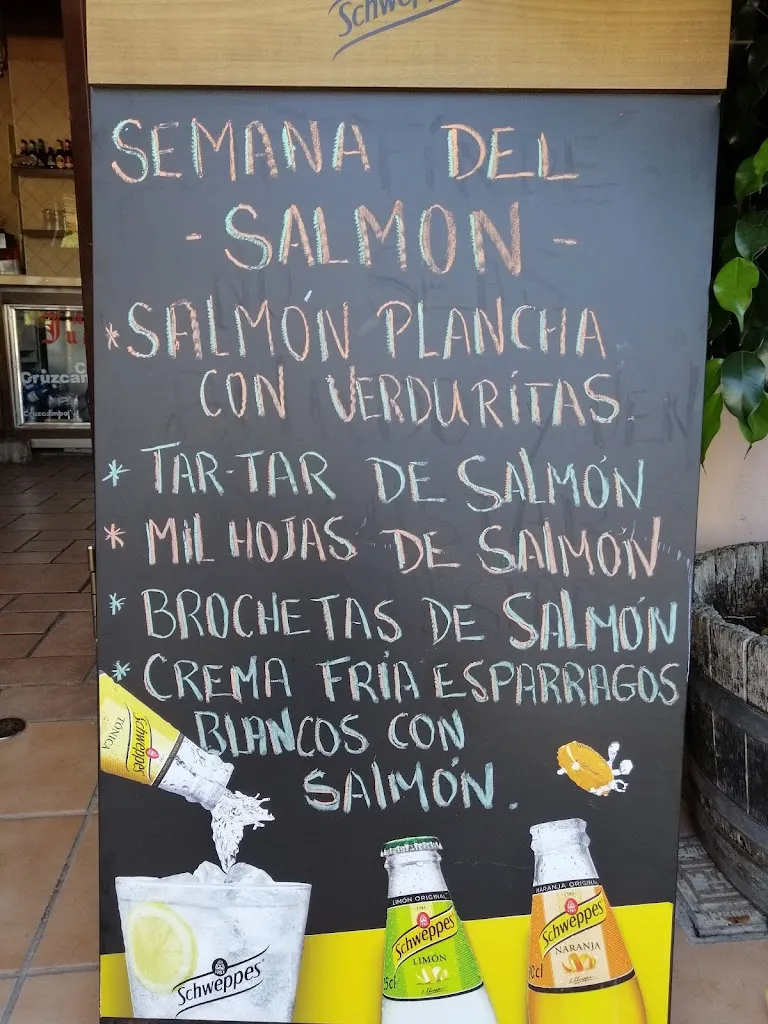 Schweppes
SEMANA DEL
- SALMON -
*SALMÓN PLANCHA
CON VERDURITAS.
* TAR-TAR DE SALMÓN
* MIL HOJAS DE SALMÓN
* BROCHETAS DE SALMÓN
* CREMA FRÍA ESPARRAGOS
BLANCOS CON
SALMÓN.
Cruzcampo
Schweppes
TÓNICA
Schweppes
LIMÓN ORIGINAL
Schweppes
LIMÓN
25cl
NARANJA ORIGINAL
Schweppes
NARANJA